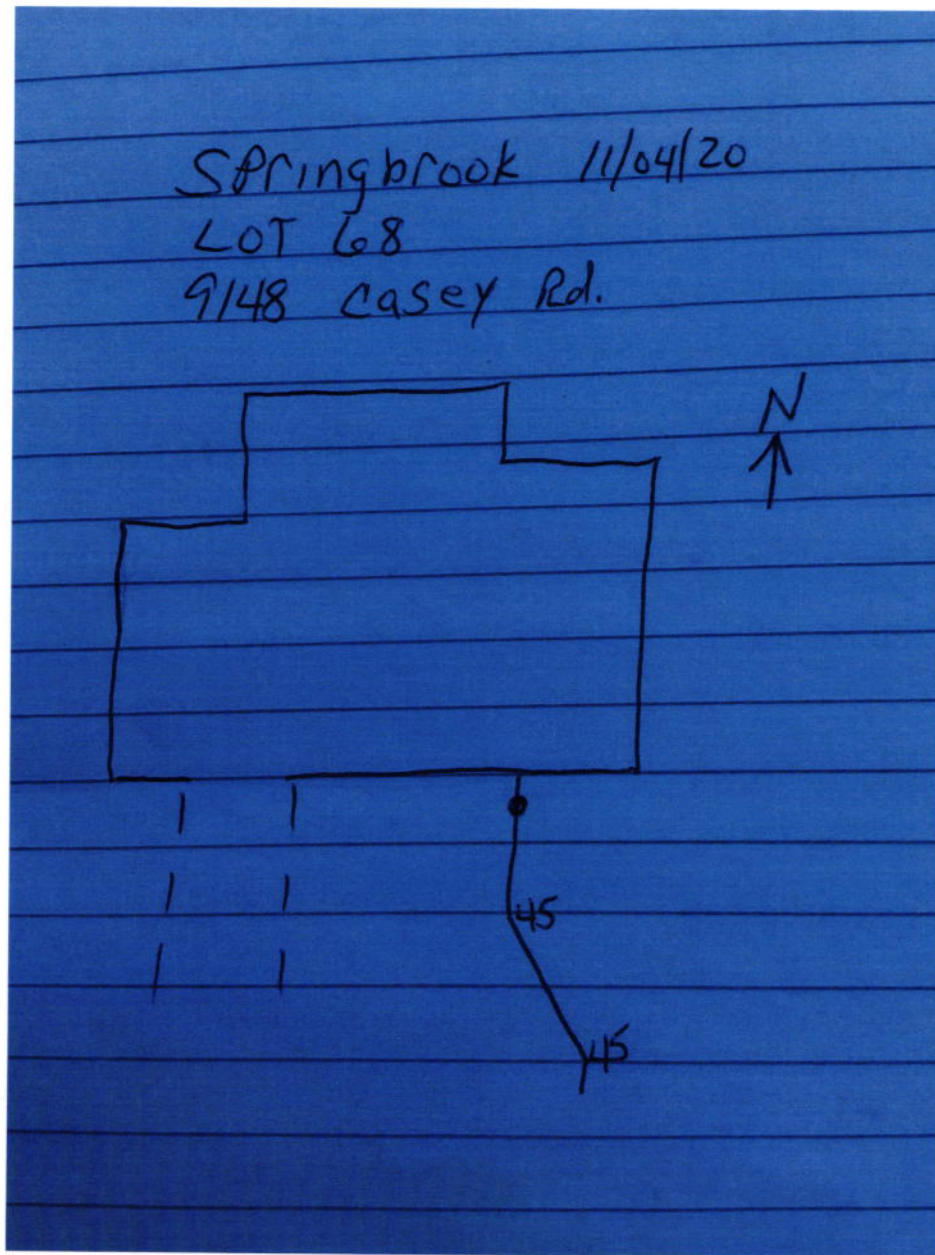 Springbrook 11/04/20
LOT 68
9148 Casey Rd.
N
45
45